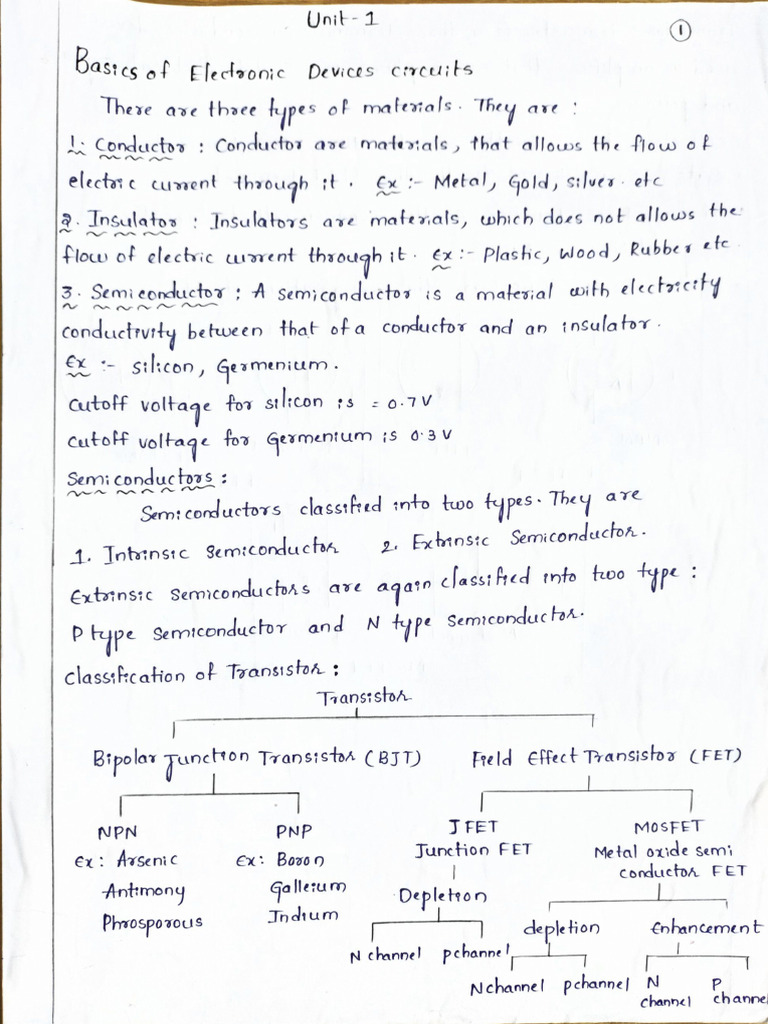 Unit-1
1
Basics of Electronic Devices circuits
There are three types of materials. They are :
1. Conductor : Conductor are materials, that allows the flow of
electric current through it. Ex :- Metal, Gold, silver. etc
2. Insulator : Insulators are materials, which does not allows the
flow of electric current through it. Ex :- Plastic, Wood, Rubber etc.
3. Semiconductor : A semiconductor is a material with electricity
conductivity between that of a conductor and an insulator.
Ex :- silicon, Germenium.
cutoff voltage for silicon is = 0.7V
cutoff voltage for Germenium is 0.3V
Semiconductors :
Semiconductors classified into two types. They are
1. Intrinsic semiconductor 2. Extrinsic Semiconductor.
Extrinsic semiconductors are again classified into two type :
P type semiconductor and N type semiconductor.
Classification of Transistor :
Transistor
Bipolar Junction Transistor (BJT) Field Effect Transistor (FET)
NPN PNP JFET MOSFET
Ex: Arsenic Ex: Boron Junction FET Metal oxide semi
Antimony Gallerium Depletion conductor FET
Phrosporous Indium depletion Enhancement
N channel pchannel
Nchannel pchannel N channel P channel